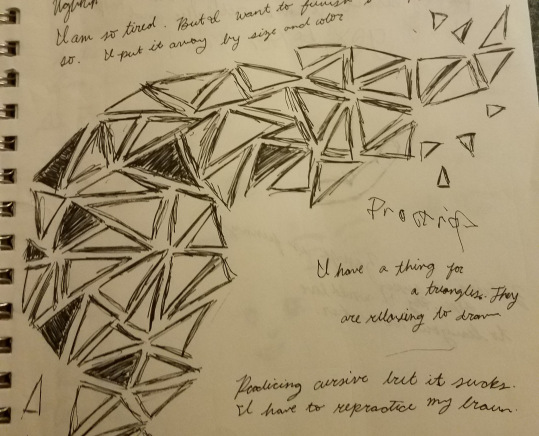 I am so tired. But I want to finish
so. I put it away by size and color
I have a thing for
a triangles. They
are relaxing to draw
Practicing cursive but it sucks.
I'll have to repractice my brain.